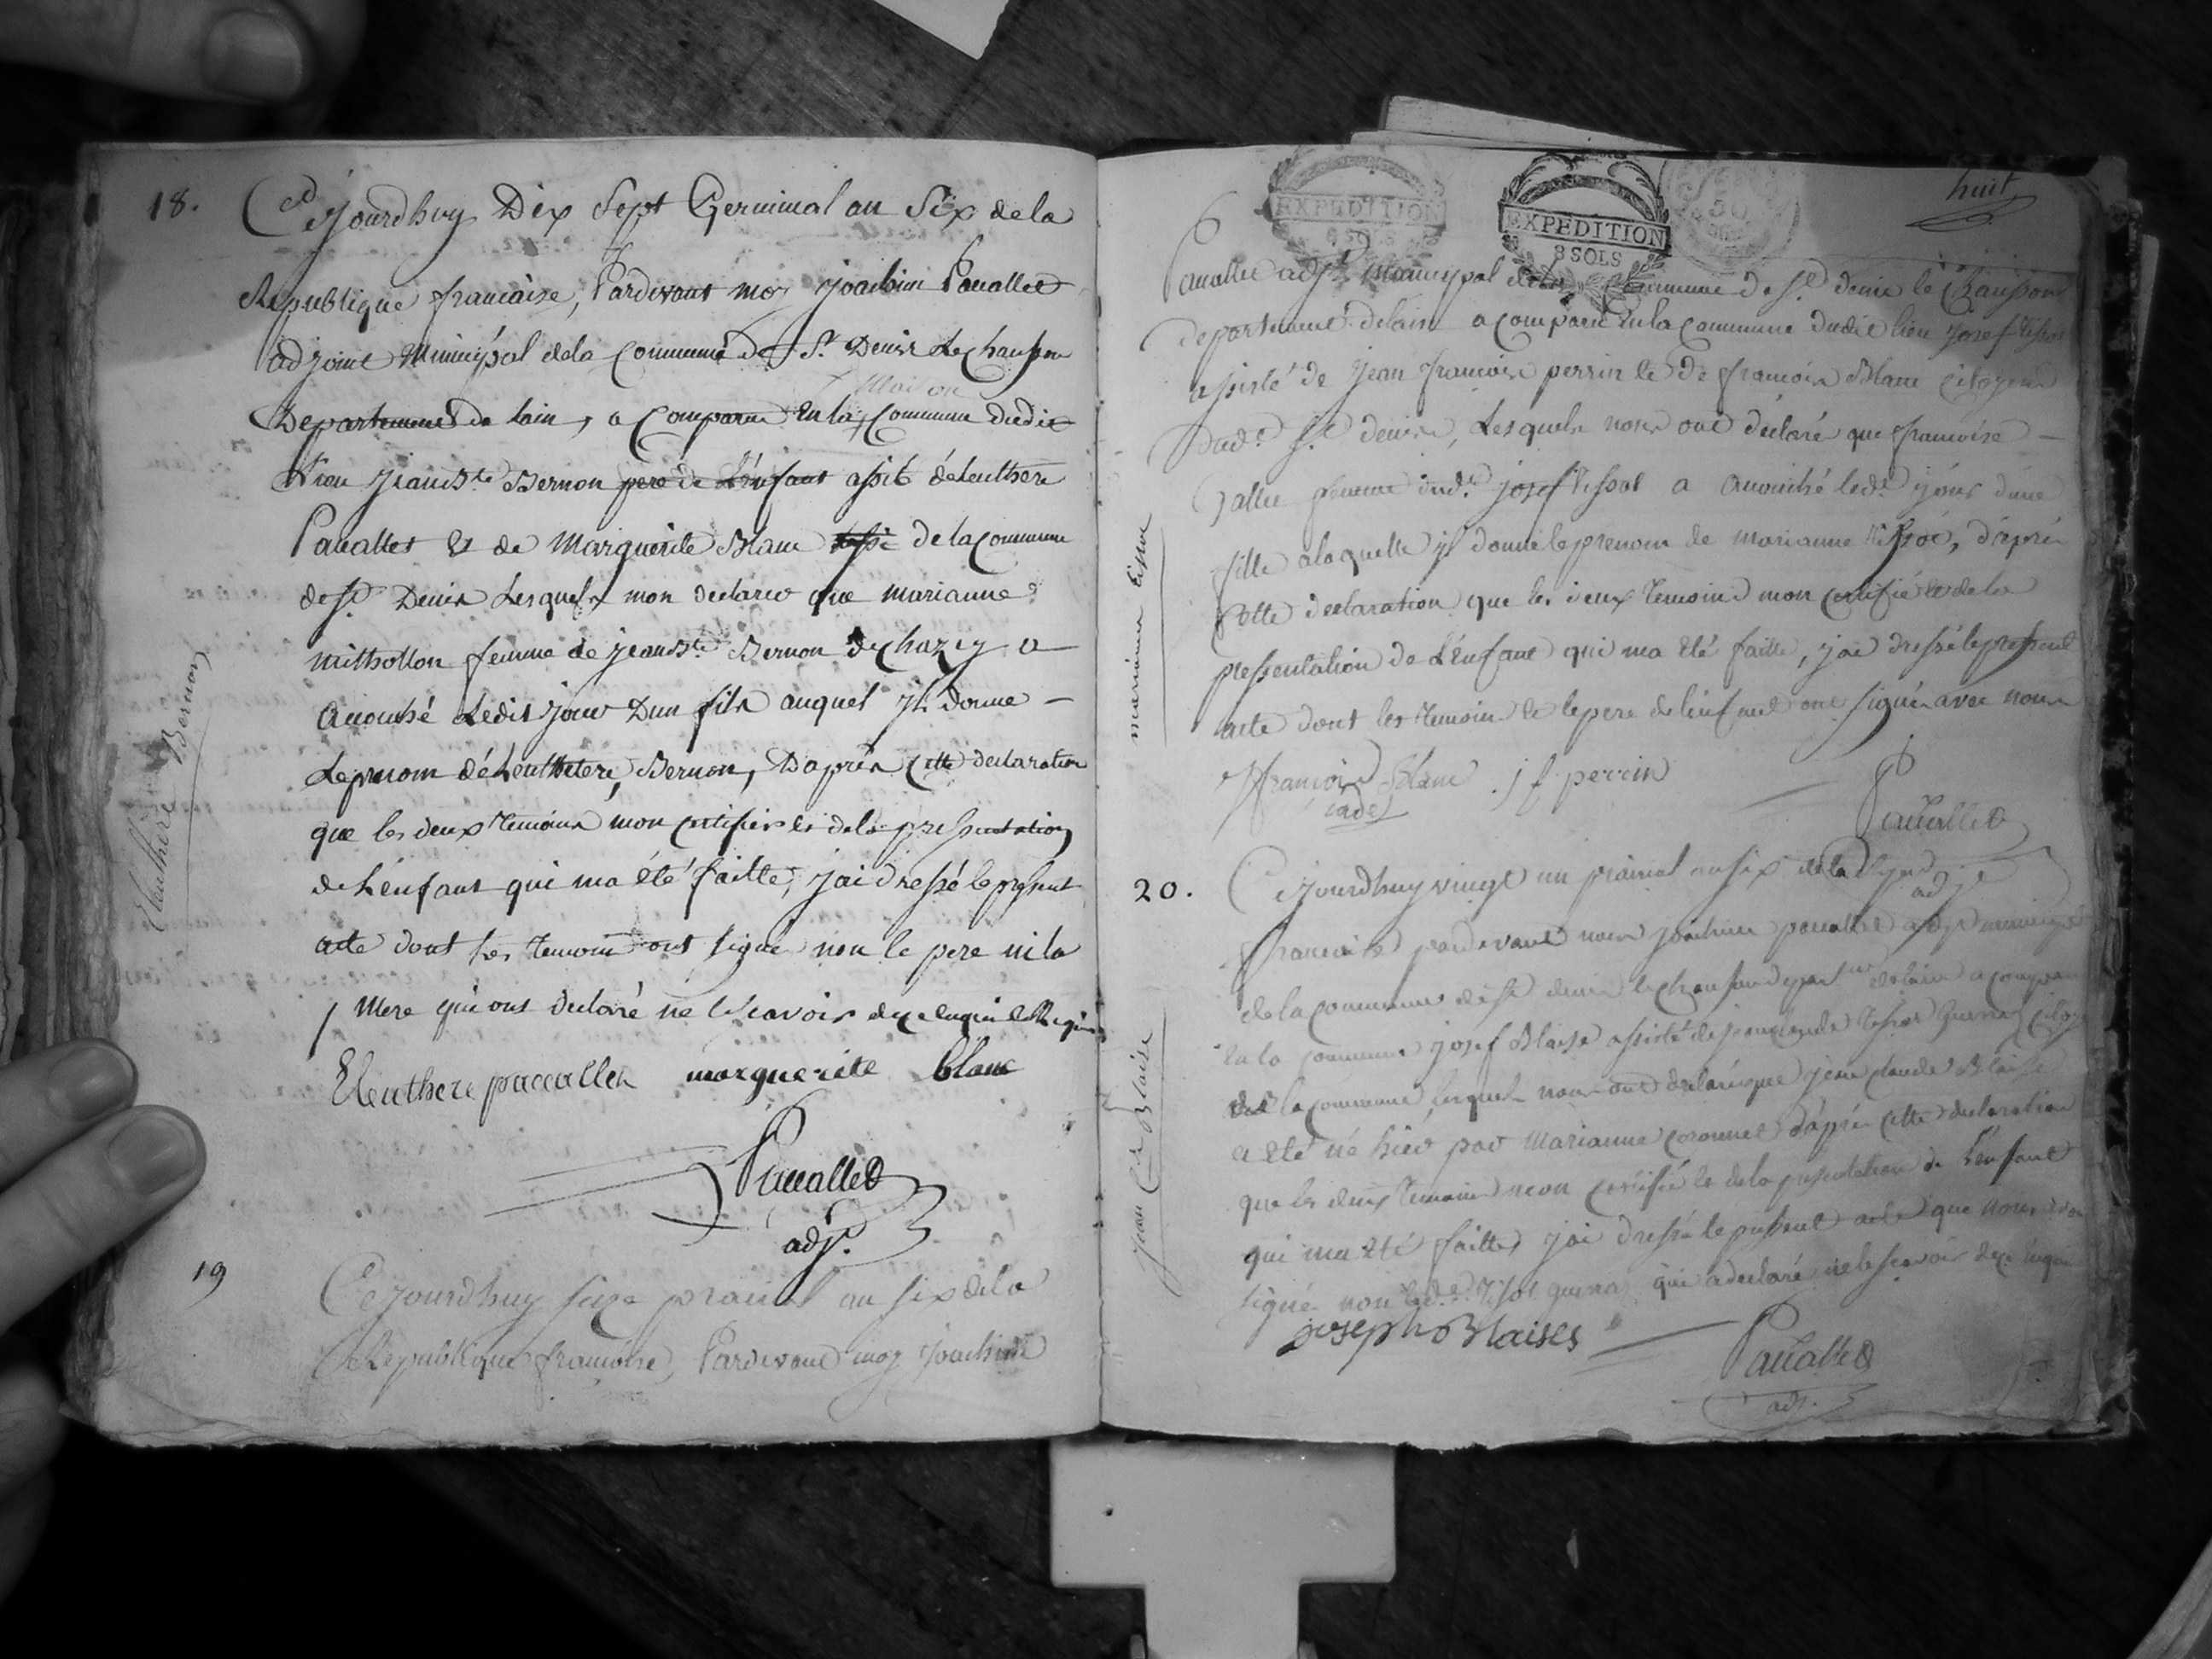 18.
Cejourdhuy Dix Sept Germinal an Six de la
Republique francaise, Pardevant moy joachim Pauallet
adjoint Municipal dela Commune de St. Denis Le Chausson
maison
Departement de lain, a Comparu En la Commune dudit
Lieu jean Bte Bernon pere de L'enfant assité déleuthere
Pauallet & de Marguerite Blanc de la Commune
de St Denis Lesquels mon declaré que marianne
mithollon femme de jean Bte Bernon de chazey a
accouché Ledit jour Dun fils auquel jl donne
Leprenom déLeutheere, Bernon, Daprès cette declaration
que les deux temoins mon certifier et dela pressentation
de L'enfant qui ma été faitte, jai dressé le present
acte dont les temoin ont signé non le pere ni la
mere qui ont declaré ne le scavoir de ce enquis & Requis
Eleuthere paccallet marguerite blanc
Pauallet
adjt.
Eleuthere Bernon
19
Cejourdhuy seize prairial an six dela
Republique francoise, Pardevant moy joachim
huit
EXPEDITION
8 SOLS
EXPEDITION
8 SOLS
Pauallet adjt municypal dela Commune de St denis le Chausson
departement delain a comparu En la Commune dudit lieu josef tissot
assisté de jean francois perrin & de francois Blanc citoyens
dud. St denis, Lesquels nous ont déclaré que francoise
vallée femme dud. josef tissot a accouché led. jour dune
fille a laquelle jl donne le prenom de marianne tissot, d'après
Cette declaration que les deux temoins mon certifié & de la
pressentation de L'enfant qui ma été faitte, jai dressé le present
acte dont les temoins & le pere de l'enfant ont signé avec nous
francois Blanc j f perrin
cadet
Pauallet
adjt
marianne tissot
20.
Cejourdhuy vingt un prairial an six de la Repud
francaise pardevant nous joachim pauallet adjt municipal
de la commune de St denis le chausson depart delain a comparu
En la commune josef Blaise assisté de jean claude tissot Guerraz
de la commune, lesquels nous ont declaré que jean claude Blaise
a été né hier par Marianne coronnel d'après cette declaration
que les deux temoins mon certifié & dela presentation de L'enfant
qui ma été faitte, jai dressé le present acte que nous avons
signé non led. tissot guerraz qui a declaré ne le scavoir de ce enquis
joseph Blaises
Pauallet
adjt.
jean Cde Blaise